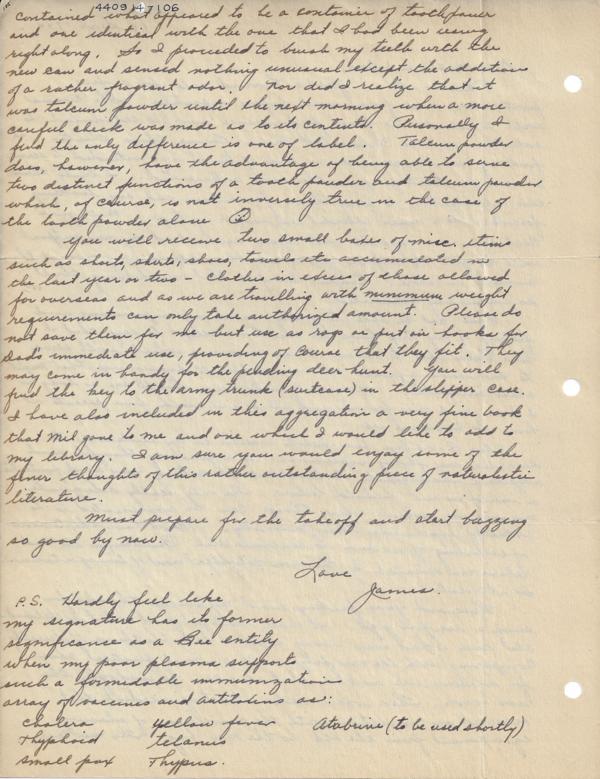 4409 47106
contained what appeared to be a container of toothpower
and one identical with the one that I had been using
right along. So I proceeded to brush my teeth with the
new can and sensed nothing unusual except the addition
of a rather fragrant odor. Nor did I realize that it
was talcum powder until the next morning when a more
careful check was made as to its contents. Personally I
find the only difference is one of label. Talcum powder
does, however, have the advantage of being able to serve
two distinct functions of a tooth powder and talcum powder
which, of course, is not inversely true in the case of
the tooth powder alone
You will receive two small boxes of misc. items
such as shorts, shirts, shoes, towels etc accumulated in
the last year or two - clothes in excess of those allowed
for overseas and as we are travelling with minimum weight
requirements can only take authorized amount. Please do
not save them for me but use as rags or put on hooks for
Dad's immediate use, providing of course that they fit. They
may come in handy for the pending deer hunt. You will
find the key to the army trunk (suitcase) in the slipper case.
I have also included in this aggregation a very fine book
that Mil gave to me and one which I would like to add to
my library. I am sure you would enjoy some of the
finer thoughts of this rather outstanding piece of naturalistic
literature.
Must prepare for the takeoff and start buzzing
so good by now.
Love
James.
P.S. Hardly feel like
my signature has its former
significance as a Bee entity
when my poor plasma supports
such a formidable immunization
array of vaccines and antitoxins as:
Cholera yellow fever Atabrine (to be used shortly)
Thyphoid tetanus
small pox Thypus.